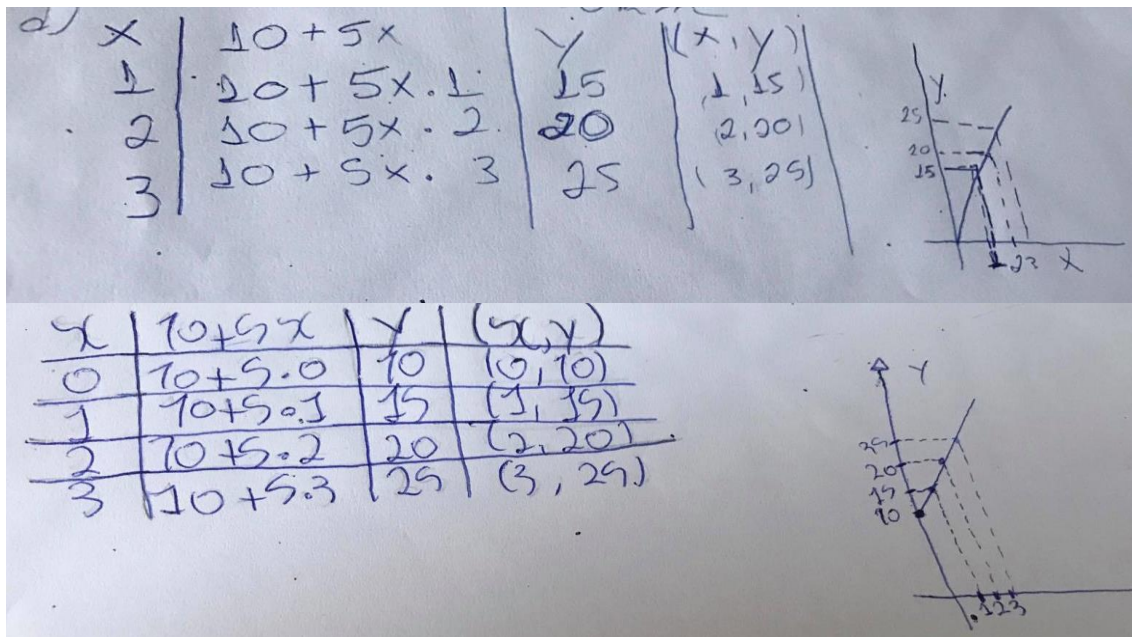 d)
x | 10 + 5x | y | (x, y)
1 | 10 + 5x . 1 | 15 | (1, 15)
2 | 10 + 5x . 2 | 20 | (2, 20)
3 | 10 + 5x . 3 | 25 | (3, 25)
y
25
20
15
1 2 3 x
x | 10+5x | y | (x, y)
0 | 10+5.0 | 10 | (0, 10)
1 | 10+5.1 | 15 | (1, 15)
2 | 10+5.2 | 20 | (2, 20)
3 | 10+5.3 | 25 | (3, 25)
y
25
20
15
10
1 2 3